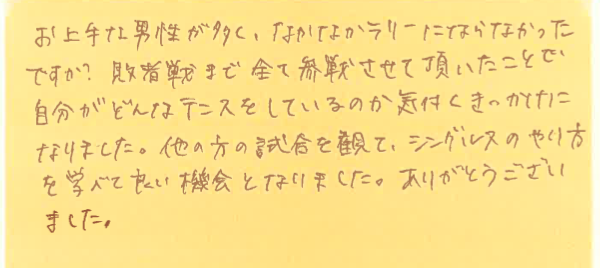 お上手な男性が多く、なかなかラリーにならなかった
ですが？敗者戦まで全て参戦させて頂いたことで
自分がどんなテニスをしているのか気付くきっかけに
なりました。他の方の試合を観て、シングルスのやり方
を学べて良い機会となりました。ありがとうござい
ました。